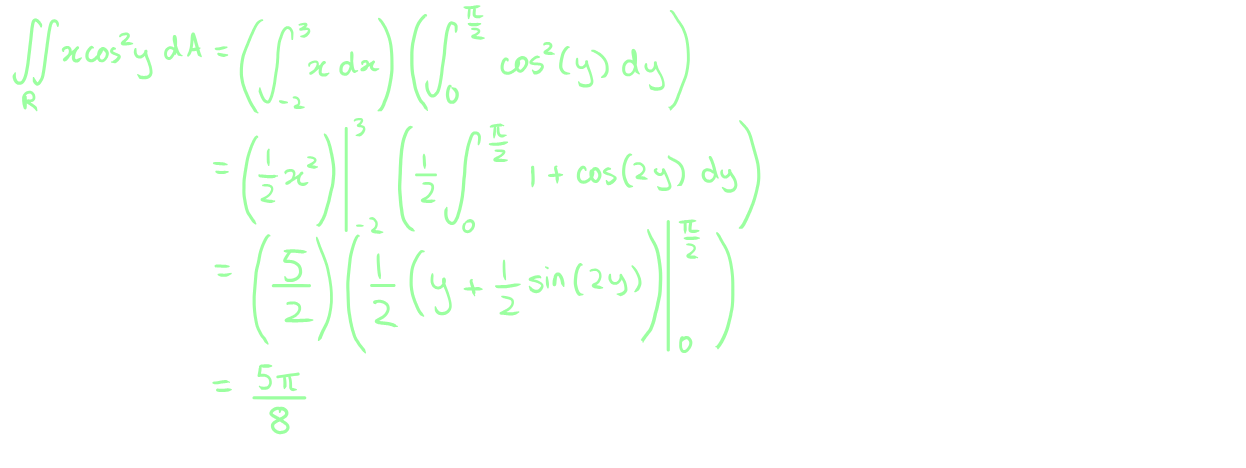 ∬_R x cos²y dA = (∫_{-2}^{3} x dx) (∫_0^{π/2} cos²(y) dy)
= (1/2 x²)|_{-2}^{3} (1/2 ∫_0^{π/2} 1 + cos(2y) dy)
= (5/2) (1/2 (y + 1/2 sin(2y))|_0^{π/2})
= 5π/8